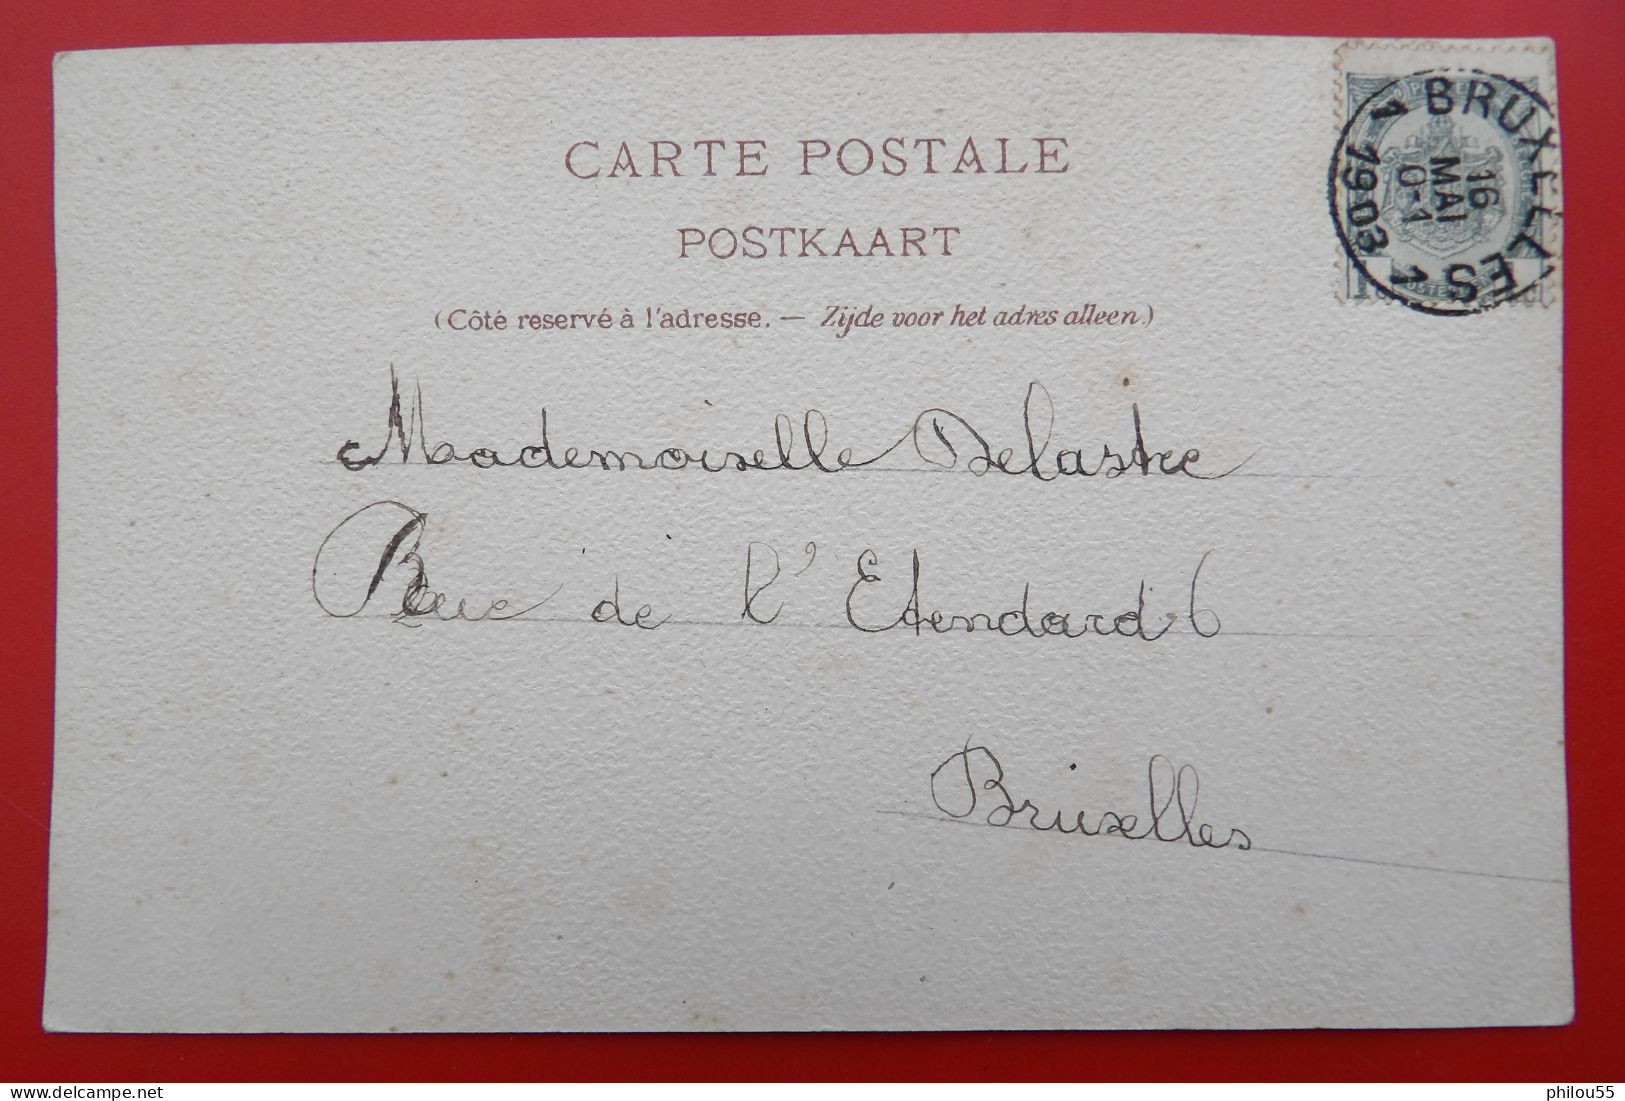 CARTE POSTALE
POSTKAART
(Côté reservé à l'adresse. — Zijde voor het adres alleen.)
1 BRUXELLES 1
16
MAI
0-1
1903
Mademoiselle Delastre
Rue de l'Etendard 6
Bruxelles
philou55